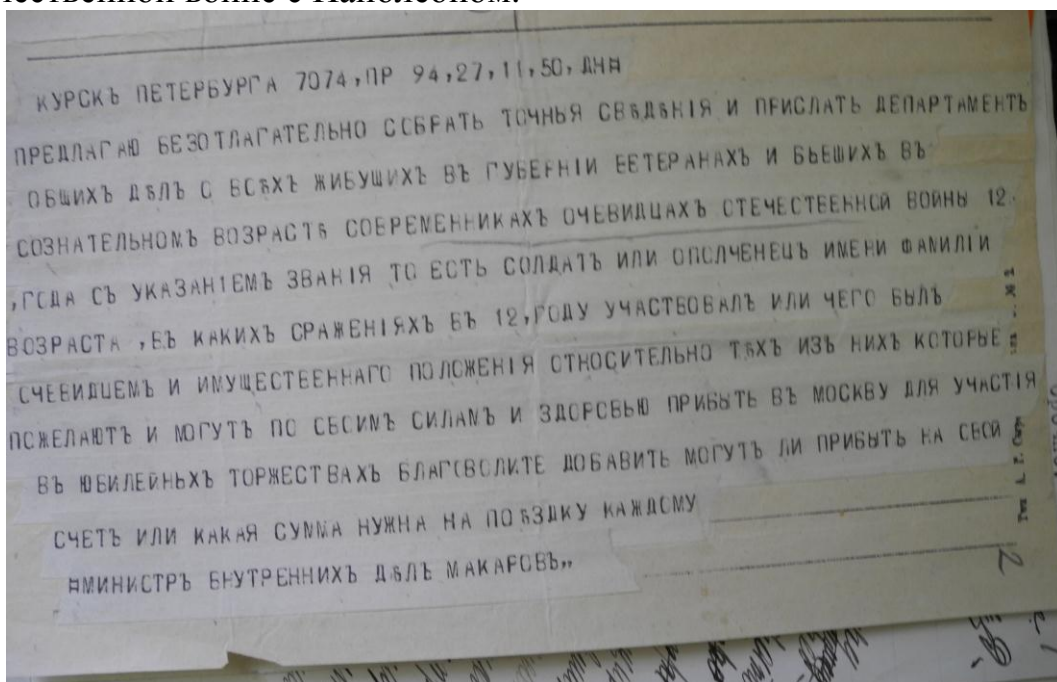 чественной войне с Наполеоном.
КУРСКЪ ПЕТЕРБУРГА 7074,ПР 94,27,11,50, ДН¤
ПРЕДЛАГАЮ БЕЗОТЛАГАТЕЛЬНО ССБРАТЬ ТОЧНЬЯ СВѢДѢНІЯ И ПРИСЛАТЬ ДЕПАРТАМЕНТЪ
ОБЩИХЪ ДѢЛЪ С ВСѢХЪ ЖИБУЩИХЪ ВЪ ГУБЕРНІИ ЕЕТЕРАНАХЪ И БЬЕШИХЪ ВЪ
СОЗНАТЕЛЬНОМЪ ВОЗРАСТѢ СОЕРЕМЕННИКАХЪ ОЧЕВИДЦАХЪ СТЕЧЕСТЕЕННСЙ ВОЙНЫ 12.
,ГСДА СЪ УКАЗАНІЕМЪ ЗВАНІЯ ТО ЕСТЬ СОЛДАТЪ ИЛИ ОПСЛЧЕНЕЦЪ ИМЕНИ ФАМИЛІИ
ВОЗРАСТА ,ЕЪ КАКИХЪ СРАЖЕНІЯХЪ БЪ 12,ГОДУ УЧАСТБОВАЛЪ ИЛИ ЧЕГО БЫЛЪ
СЧЕВИДЦЕМЪ И ИМУЩЕСТВЕЕННАГО ПОЛСЖЕНІЯ ОТНОСИТЕЛЬНО ТѢХЪ ИЗЪ НИХЪ КОТОРЬЕ
ПСЖЕЛАЮТЪ И МОГУТЪ ПО СЕСИМЪ СИЛАМЪ И ЗДОРСВЬЮ ПРИБЬТЬ ВЪ МОСКВУ ДЛЯ УЧАСТІЯ
ВЪ ЮБИЛЕЙНЬХЪ ТОРЖЕСТВАХЪ БЛАГСВОЛИТЕ ДОБАВИТЬ МОГУТЪ ЛИ ПРИБЫТЬ НА СЕСЙ
СЧЕТЪ ИЛИ КАКАЯ СУММА НУЖНА НА ПОѢЗДКУ КАЖДСМУ
¤МИНИСТРЪ ЕНУТРЕННИХЪ ДѢЛЪ МАКАРСВЪ„
2